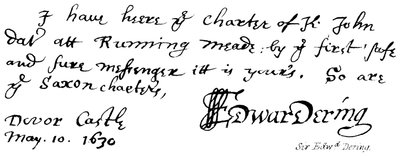 I have heere yᵉ charter of K. John
dat' att Running Meade: by yᵉ first safe
and sure messenger itt is your's. So are
yᵉ Saxon charters,
EdwarDering
Dover Castle
May. 10. 1630
Sir Edwᵈ Dering.